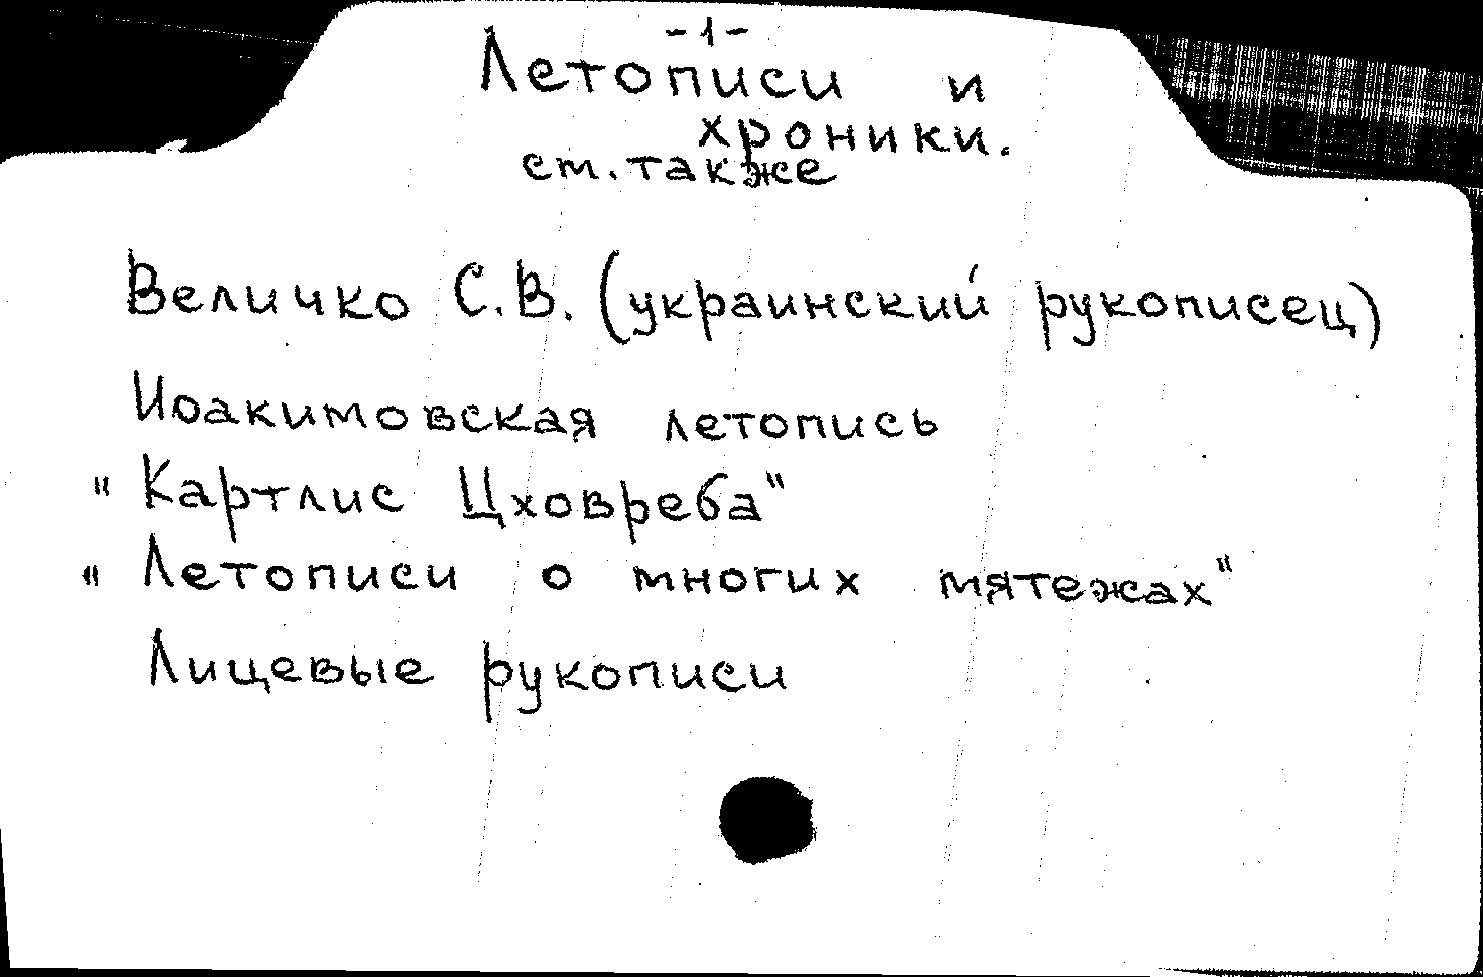 -1-
Летописи и
хроники.
см. также
Величко С.В. (украинский рукописец)
Иоакимовская летопись
"Картлис Цховреба"
"Летописи о многих мятежах"
Лицевые рукописи